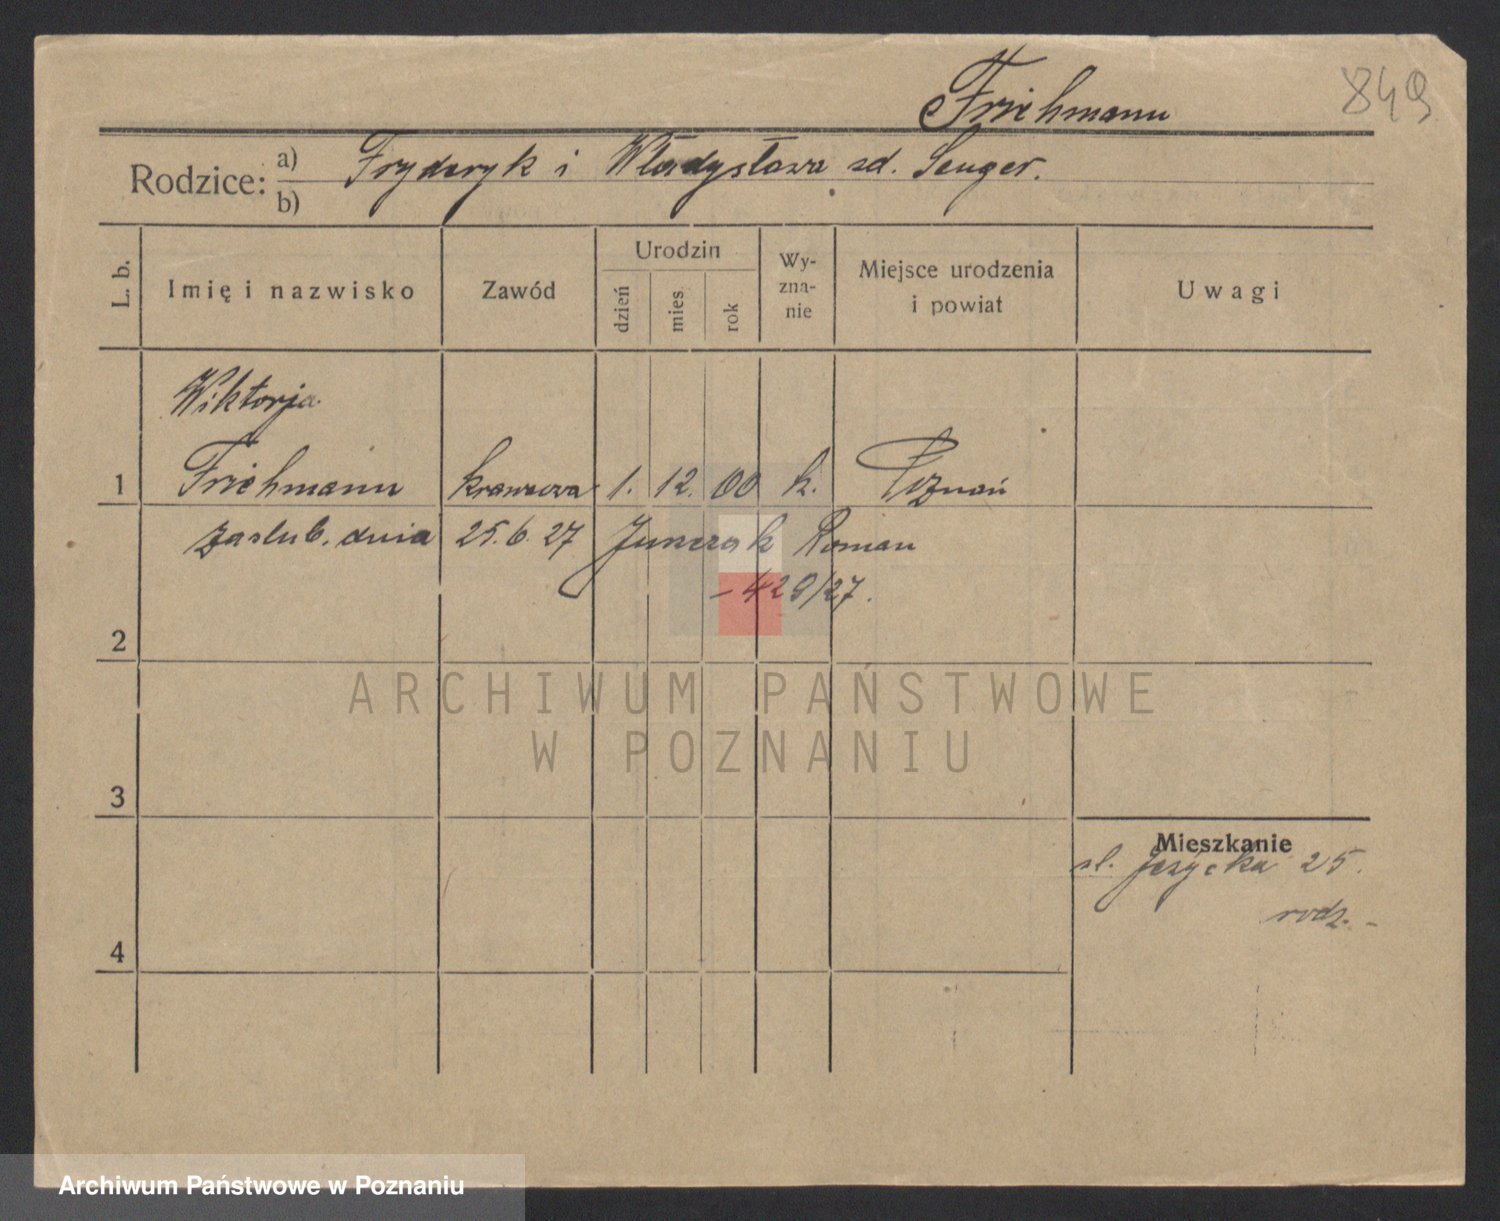 849
Friehmann
Rodzice: a) Fryderyk i Władysława zd. Senger.
b)
L. b.
Imię i nazwisko
Zawód
Urodzin
dzień
mies
rok
Wy-
zna-
nie
Miejsce urodzenia
i powiat
Uwagi
Wiktorja
1 Friehmann krawcowa 1. 12. 00 k. Poznań
zaslub. dnia 25.6.27 Roman
- 429/27.
2
3
4
Mieszkanie
ul. Jeżycka 25.
rodz. -
ARCHIWUM PAŃSTWOWE
W POZNANIU
Archiwum Państwowe w Poznaniu